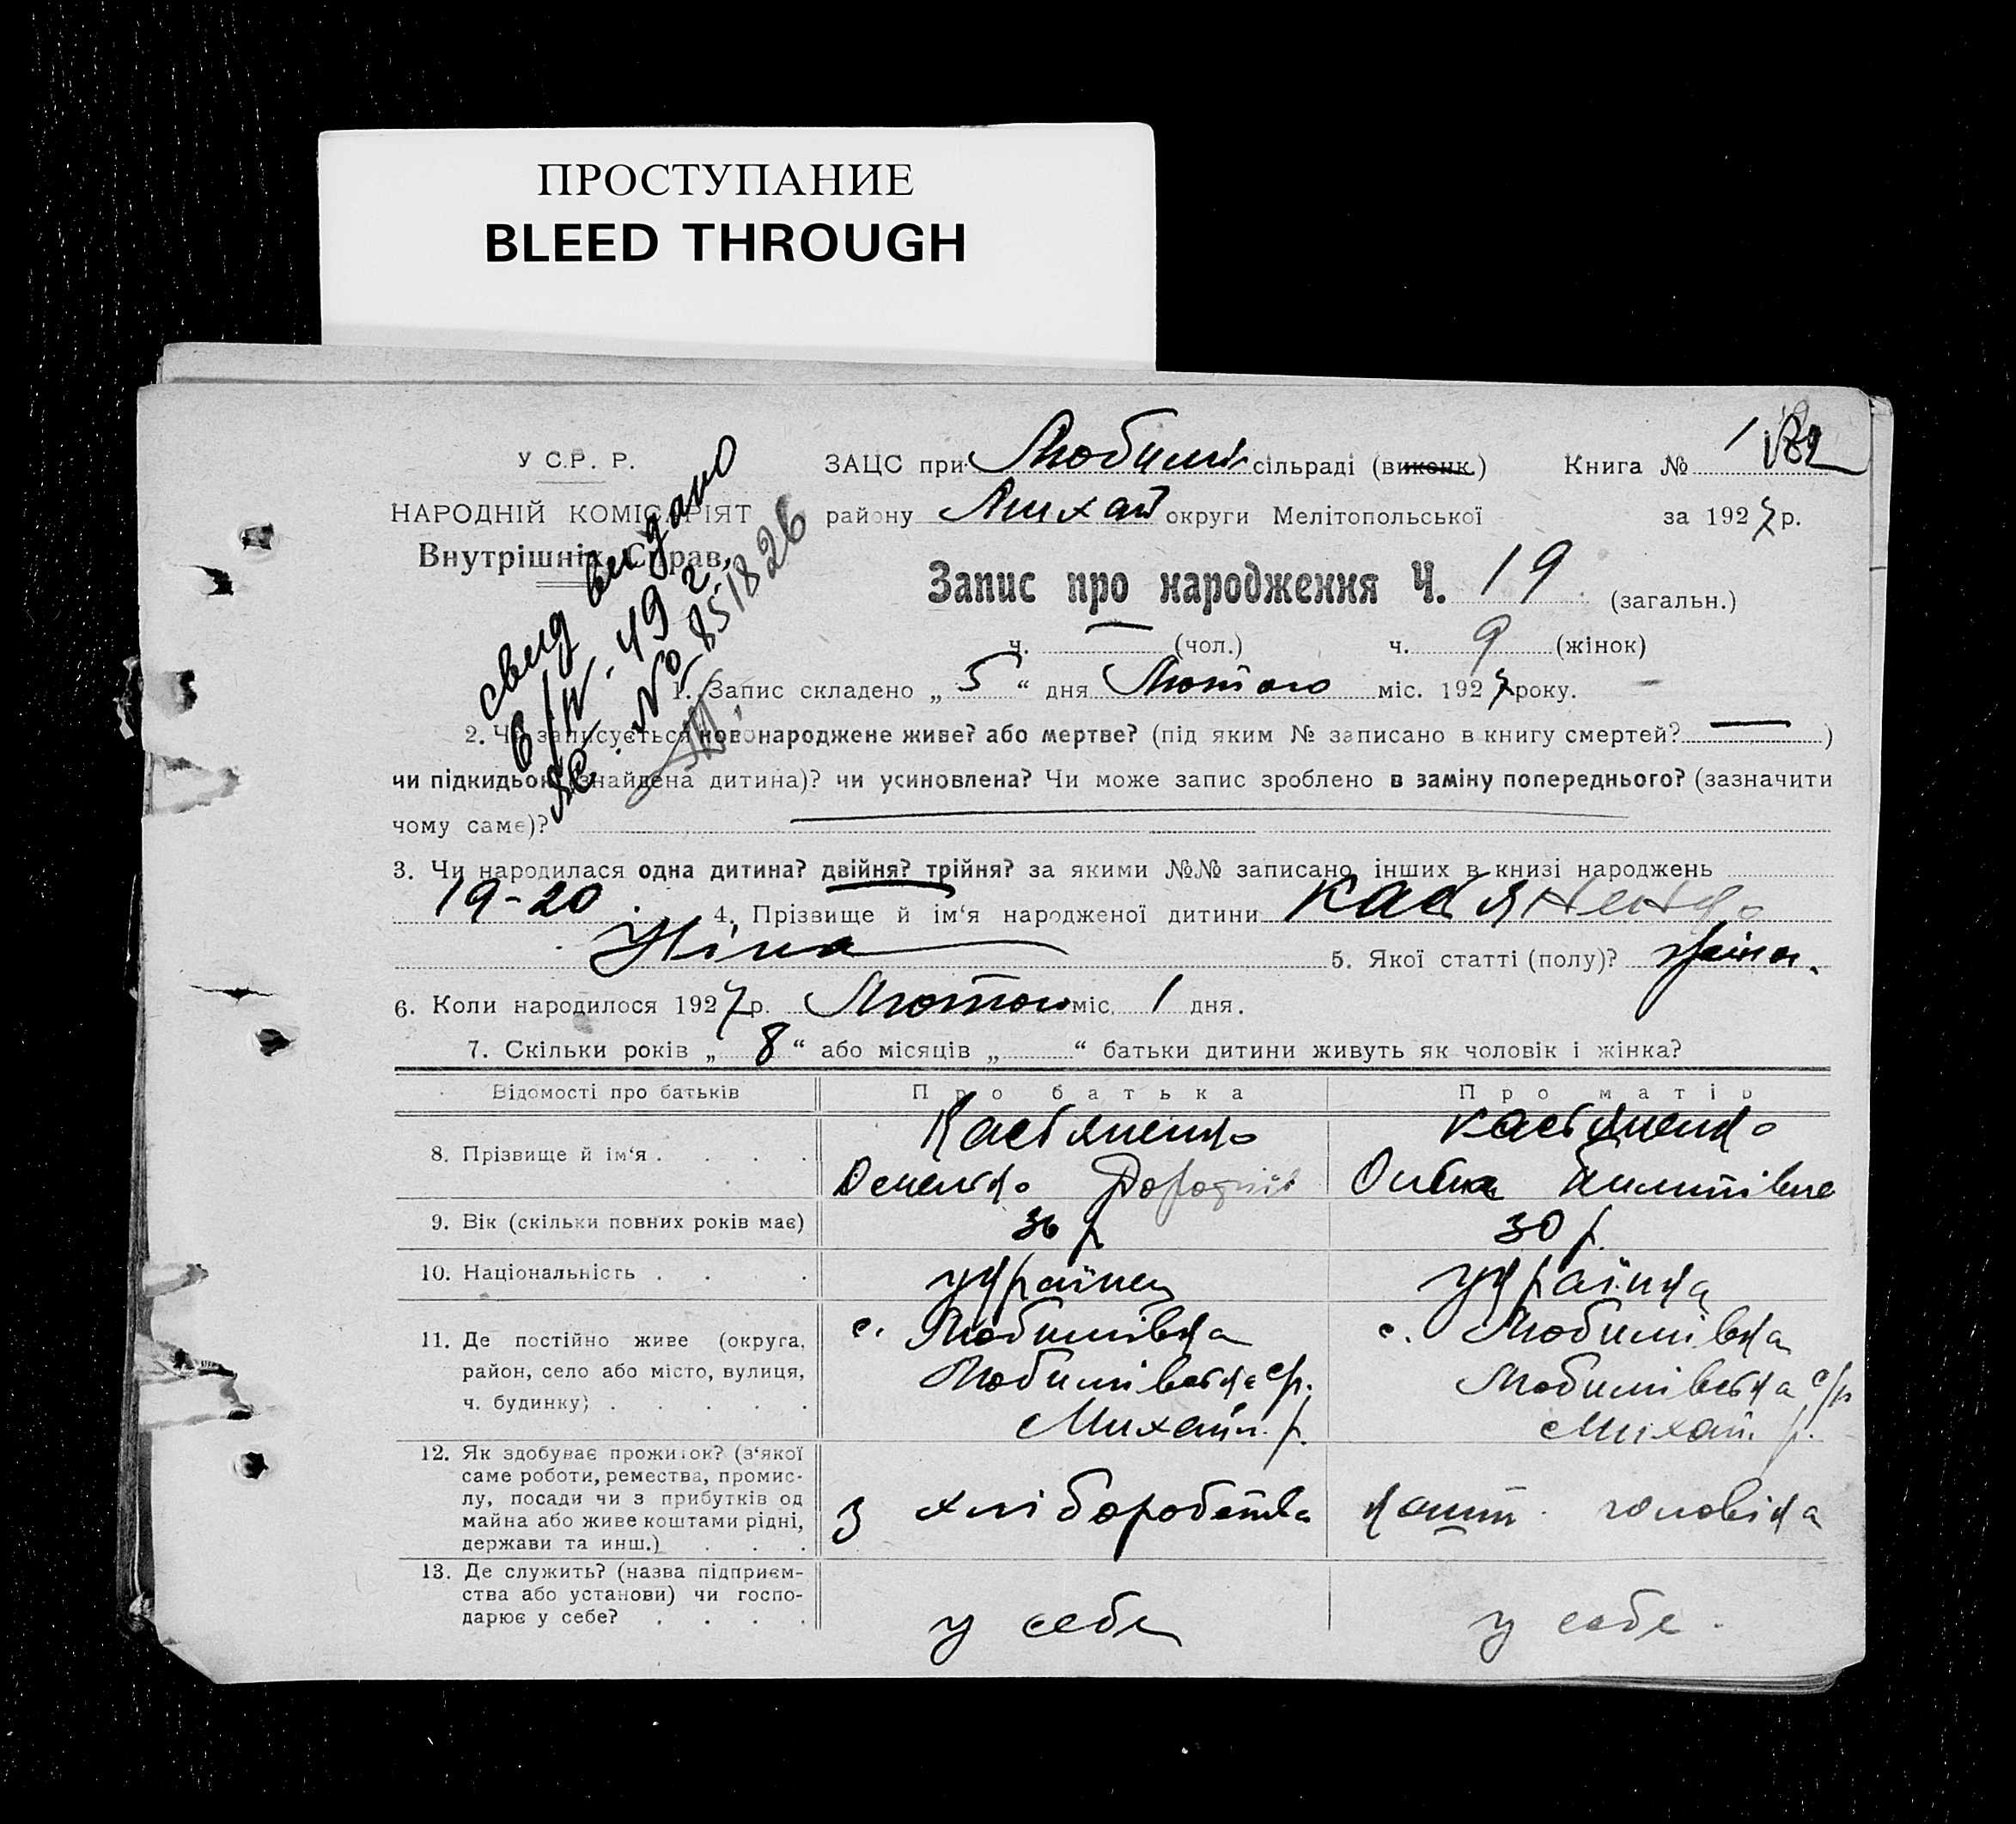 ПРОСТУПАНИЕ
BLEED THROUGH
У С.Р. Р.
НАРОДНІЙ КОМІСАРІЯТ
Внутрішніх Справ
свид выдано
№ 851826
ЗАЦС при Любимів сільраді (виконк.) Книга № 1
району Михай округи Мелітопольської за 1927 р.
Запис про народження Ч. 19 (загальн.)
ч. — (чол.) ч. 9 (жінок)
1. Запис складено „ 5 “ дня Лютого міс. 1927 року.
2. Чи записується новонароджене живе? або мертве? (під яким № записано в книгу смертей? — )
чи підкидьок (знайдена дитина)? чи усиновлена? Чи може запис зроблено в заміну попереднього? (зазначити
чому саме)?
3. Чи народилася одна дитина? двійня? трійня? за якими №№ записано інших в книзі народжень
19-20. 4. Прізвище й ім‘я народженої дитини Касьяненко
Ніна 5. Якої статті (полу)? жіноч.
6. Коли народилося 1927 р. Лютого міс. 1 дня.
7. Скільки років „ 8 “ або місяців „ “ батьки дитини живуть як чоловік і жінка?
Відомості про батьків Про батька Про матір
8. Прізвище й ім‘я . . . . Касьяненко Касьяненко
9. Вік (скільки повних років має) 36 р. 30 р.
10. Національність . . . . українец українка
11. Де постійно живе (округа, с. Любимівка с. Любимівка
район, село або місто, вулиця, Любимівська с/р. Любимівська с/р
ч. будинку) . . . . . Михайл. р. Михайл. р.
12. Як здобуває прожиток? (з‘якої
саме роботи, ремества, промис-
лу, посади чи з прибутків од з хліборобства кошт. чоловіка
майна або живе коштами рідні,
держави та инш.) . . .
13. Де служить? (назва підприєм-
ства або установи) чи госпо-
дарює у себе? . . . . у себе у себе.